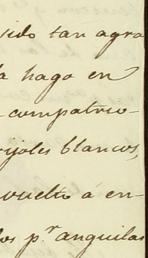 sido tan agra
la hago en
compatrio-
rijoles blancos,
vuelto á en-
los pr. anguilas